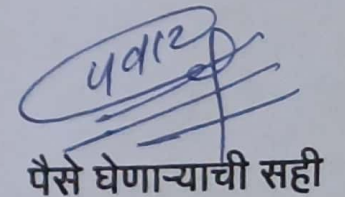 पवार
पैसे घेणाऱ्याची सही